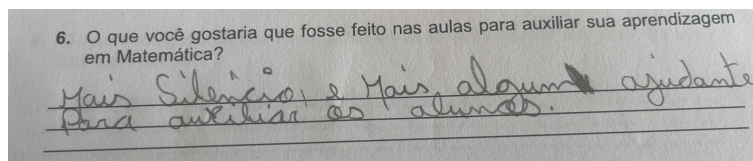 6. O que você gostaria que fosse feito nas aulas para auxiliar sua aprendizagem
em Matemática?
Mais Silêncio, e Mais algum ajudante
Para auxiliar os alunos.